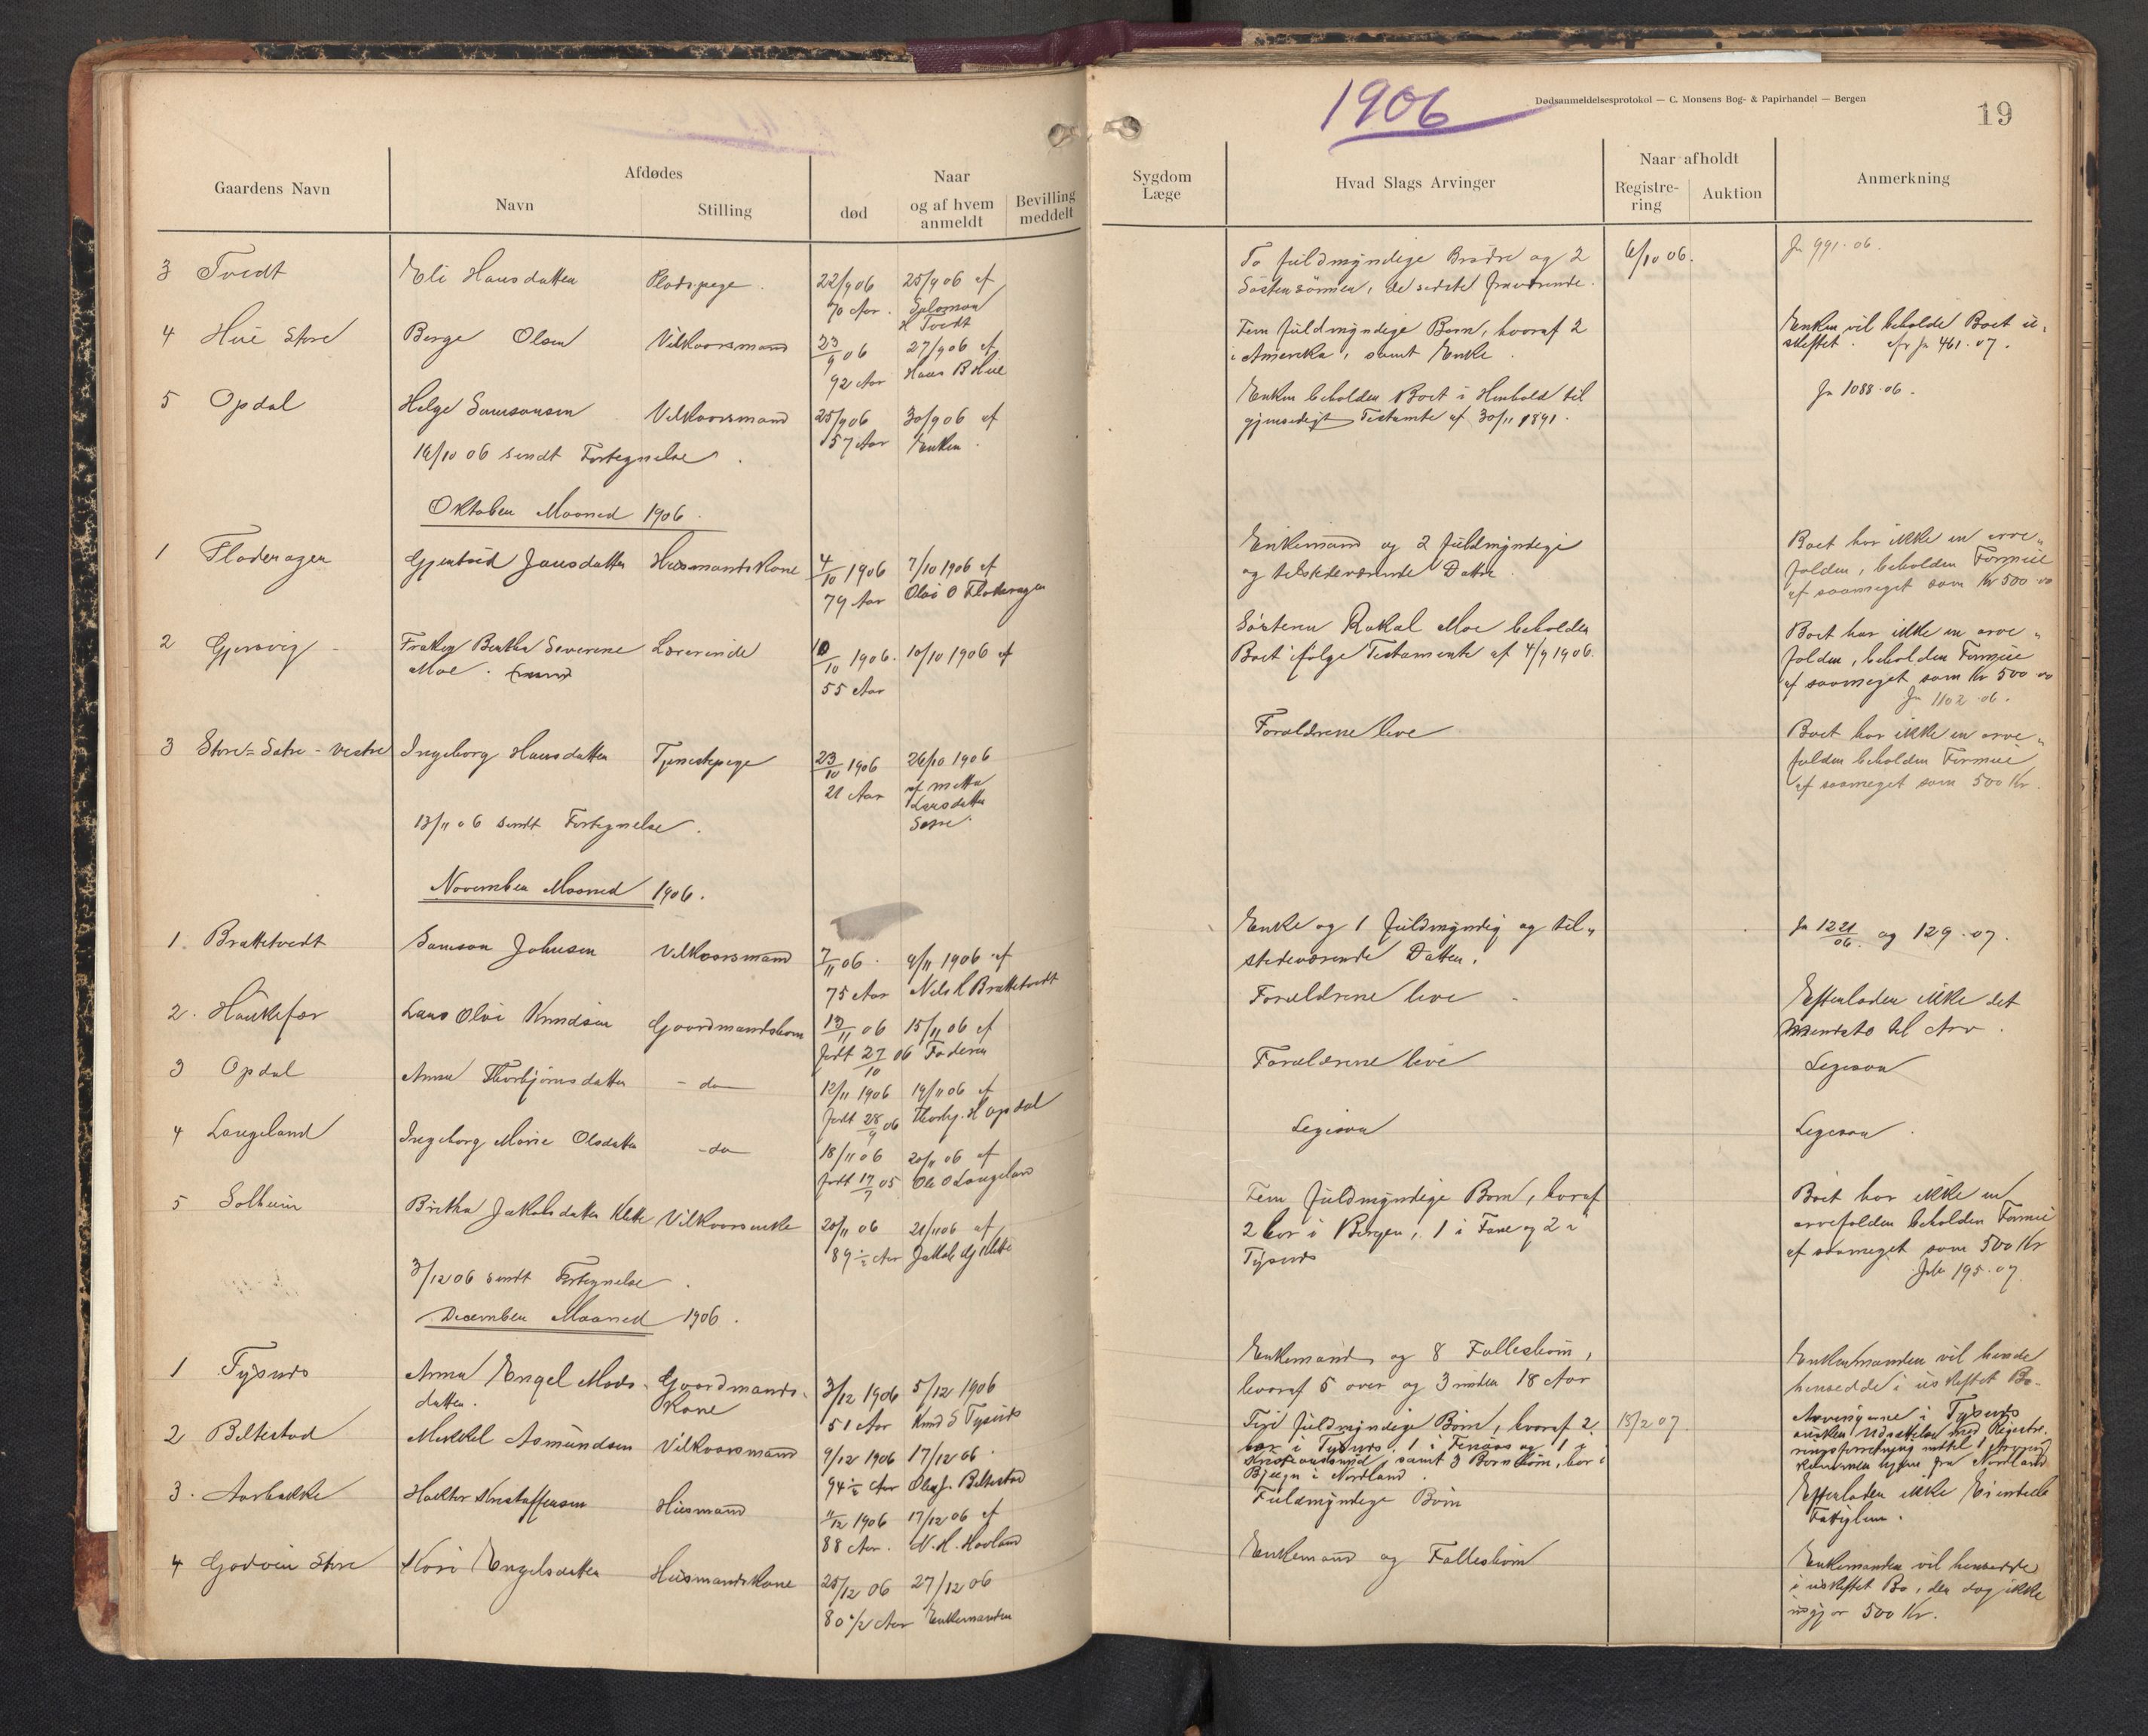 1906
Dødsanmeldelsesprotokol — C. Monsens Bog- & Papirhandel — Bergen
19
Gaardens Navn
Afdødes
Navn
Stilling
død
Naar
og af hvem
anmeldt
Bevilling
meddelt
Sygdom
Læge
Hvad Slags Arvinger
Naar afholdt
Registre-
ring
Auktion
Anmerkning
3 Tvedt Eli Hansdatter 22/9 06 25/9 06 af
70 Aar. Salomon
H Tvedt
To fuldmyndige Brødre og 2
Søstersønner, de sidste fraværende.
6/10 06.
Jr 991.06.
4 Hue Store Berge Olsen Vilkaarsmand 23/9 06 27/9 06 af
92 Aar Hans B Hue
Fem fuldmyndige Børn, hvoraf 2
i Amerika, samt Enke.
Enken vil beholde Boet u-
skiftet. Jr 461.07.
5 Opdal Helge Samsonsen Vilkaarsmand 25/9 06 30/9 06 af
57 Aar Enken.
Enken beholder Boet i Henhold til
gjensidigt Testamte af 30/11 1891.
Jr 1088.06.
16/10 06 sendt Fortegnelse.
Oktober Maaned 1906.
1 Flateragen Gjertrud Jansdatter Husmandskone 4/10 1906 7/10 1906 af
79 Aar Olai O Flateragen
Enkemand og 2 fuldmyndige
og tilstedeværende Døttre.
Boet har ikke en arve-
falden, beholden Formue
af saameget som Kr 500.00
2 Gjersvig Frøken Bertha Severine Lærerinde 10/10 1906. 10/10 1906 af
Moe.
55 Aar
Søsteren Rakal Moe beholder
Boet ifølge Testamente af 4/9 1906.
Boet har ikke en arve-
falden, beholden Formue
af saameget som Kr 500.00
Jr 1102.06.
3 Store-Sætre-vestre Ingeborg Hansdatter Tjenestepige 23/10 1906 26/10 1906
21 Aar af Metta
Larsdatter
Forældrene leve
Boet har ikke en arve-
falden beholden Formue
af saameget som 500 Kr.
13/11 06 sendt Fortegnelse.
November Maaned 1906.
1. Brattetvedt Samson Johnsen Vilkaarsmand 7/11 06. 9/11 1906 af
75 Aar Nils L Brattetvedt
Enke og 1 fuldmyndig og til-
stedeværende Datter.
Jr 1221/06. og 129.07.
2. Haukefær Lars Olai Knudsen Gaardmandsbarn 13/11 06 15/11 06 af
født 27/10 06 Faderen
Forældrene leve
Efterlader ikke det
mindste til Arv.
3 Opdal Anna Thorbjørnsdatter - do - 12/11 1906 19/11 06 af
født 28/9 06 Thorbj. H Opdal
Forældrene leve
Ligesaa
4 Langeland Ingeborg Marie Olsdatter - do - 18/11 06 20/11 06 af
født 17/7 05 Ole O Langeland
Ligesaa
Ligesaa.
5 Solheim Britha Jakobsdatter Klette Vilkaarsenke 20/11 06 21/11 06 af
89 1/2 Aar Jakob Gj Klette
Fem fuldmyndige Børn, hvoraf
2 bor i Bergen, 1 i Fane og 2 i
Tysnes
Boet har ikke en
arvefalden beholden Formue
af saameget som 500 Kr
195.07.
3/12 06 sendt Fortegnelse.
December Maaned 1906.
1 Tysnes Anna Engel Mads- Gaardmands-
datter. kone
3/12 1906 5/12 1906
51 Aar Knud S Tysnes
Enkemand og 8 Fællesbørn,
hvoraf 5 over og 3 under 18 Aar
Enkemanden vil hende
hensidde i uskiftet Bo.
2 Beltestad Mikkel Asmundsen Vilkaarsmand 9/12 1906 17/12 06.
94 1/2 Aar Ole J. Beltestad
Fire fuldmyndige Børn, hvoraf 2
bor i Tysnes, 1 i Fenaas og 1 i
Kristiansund, samt 3 Børnebørn, bor i
i Nordland.
15/2 07.
Arvingerne i Tysnes
ønsker Udsættelse med Registre-
ringsforretning indtil 1 Arving
kommer hjem fra Nordland
3. Aarbakke Haktor Kristoffersen Husmand 11/12 1906 17/12 06 af
88 Aar. N. H. Hovland
Fuldmyndige Børn
Efterlader ikke Eiendele
Fattiglem.
4 Godøen Store Kari Engelsdatter Husmandskone 25/12 06 27/12 06
80 1/2 Aar Enkemanden
Enkemand og Fællesbørn
Enkemanden vil hensidde
i uskiftet Bo, der dog ikke
udgjør 500 Kr.